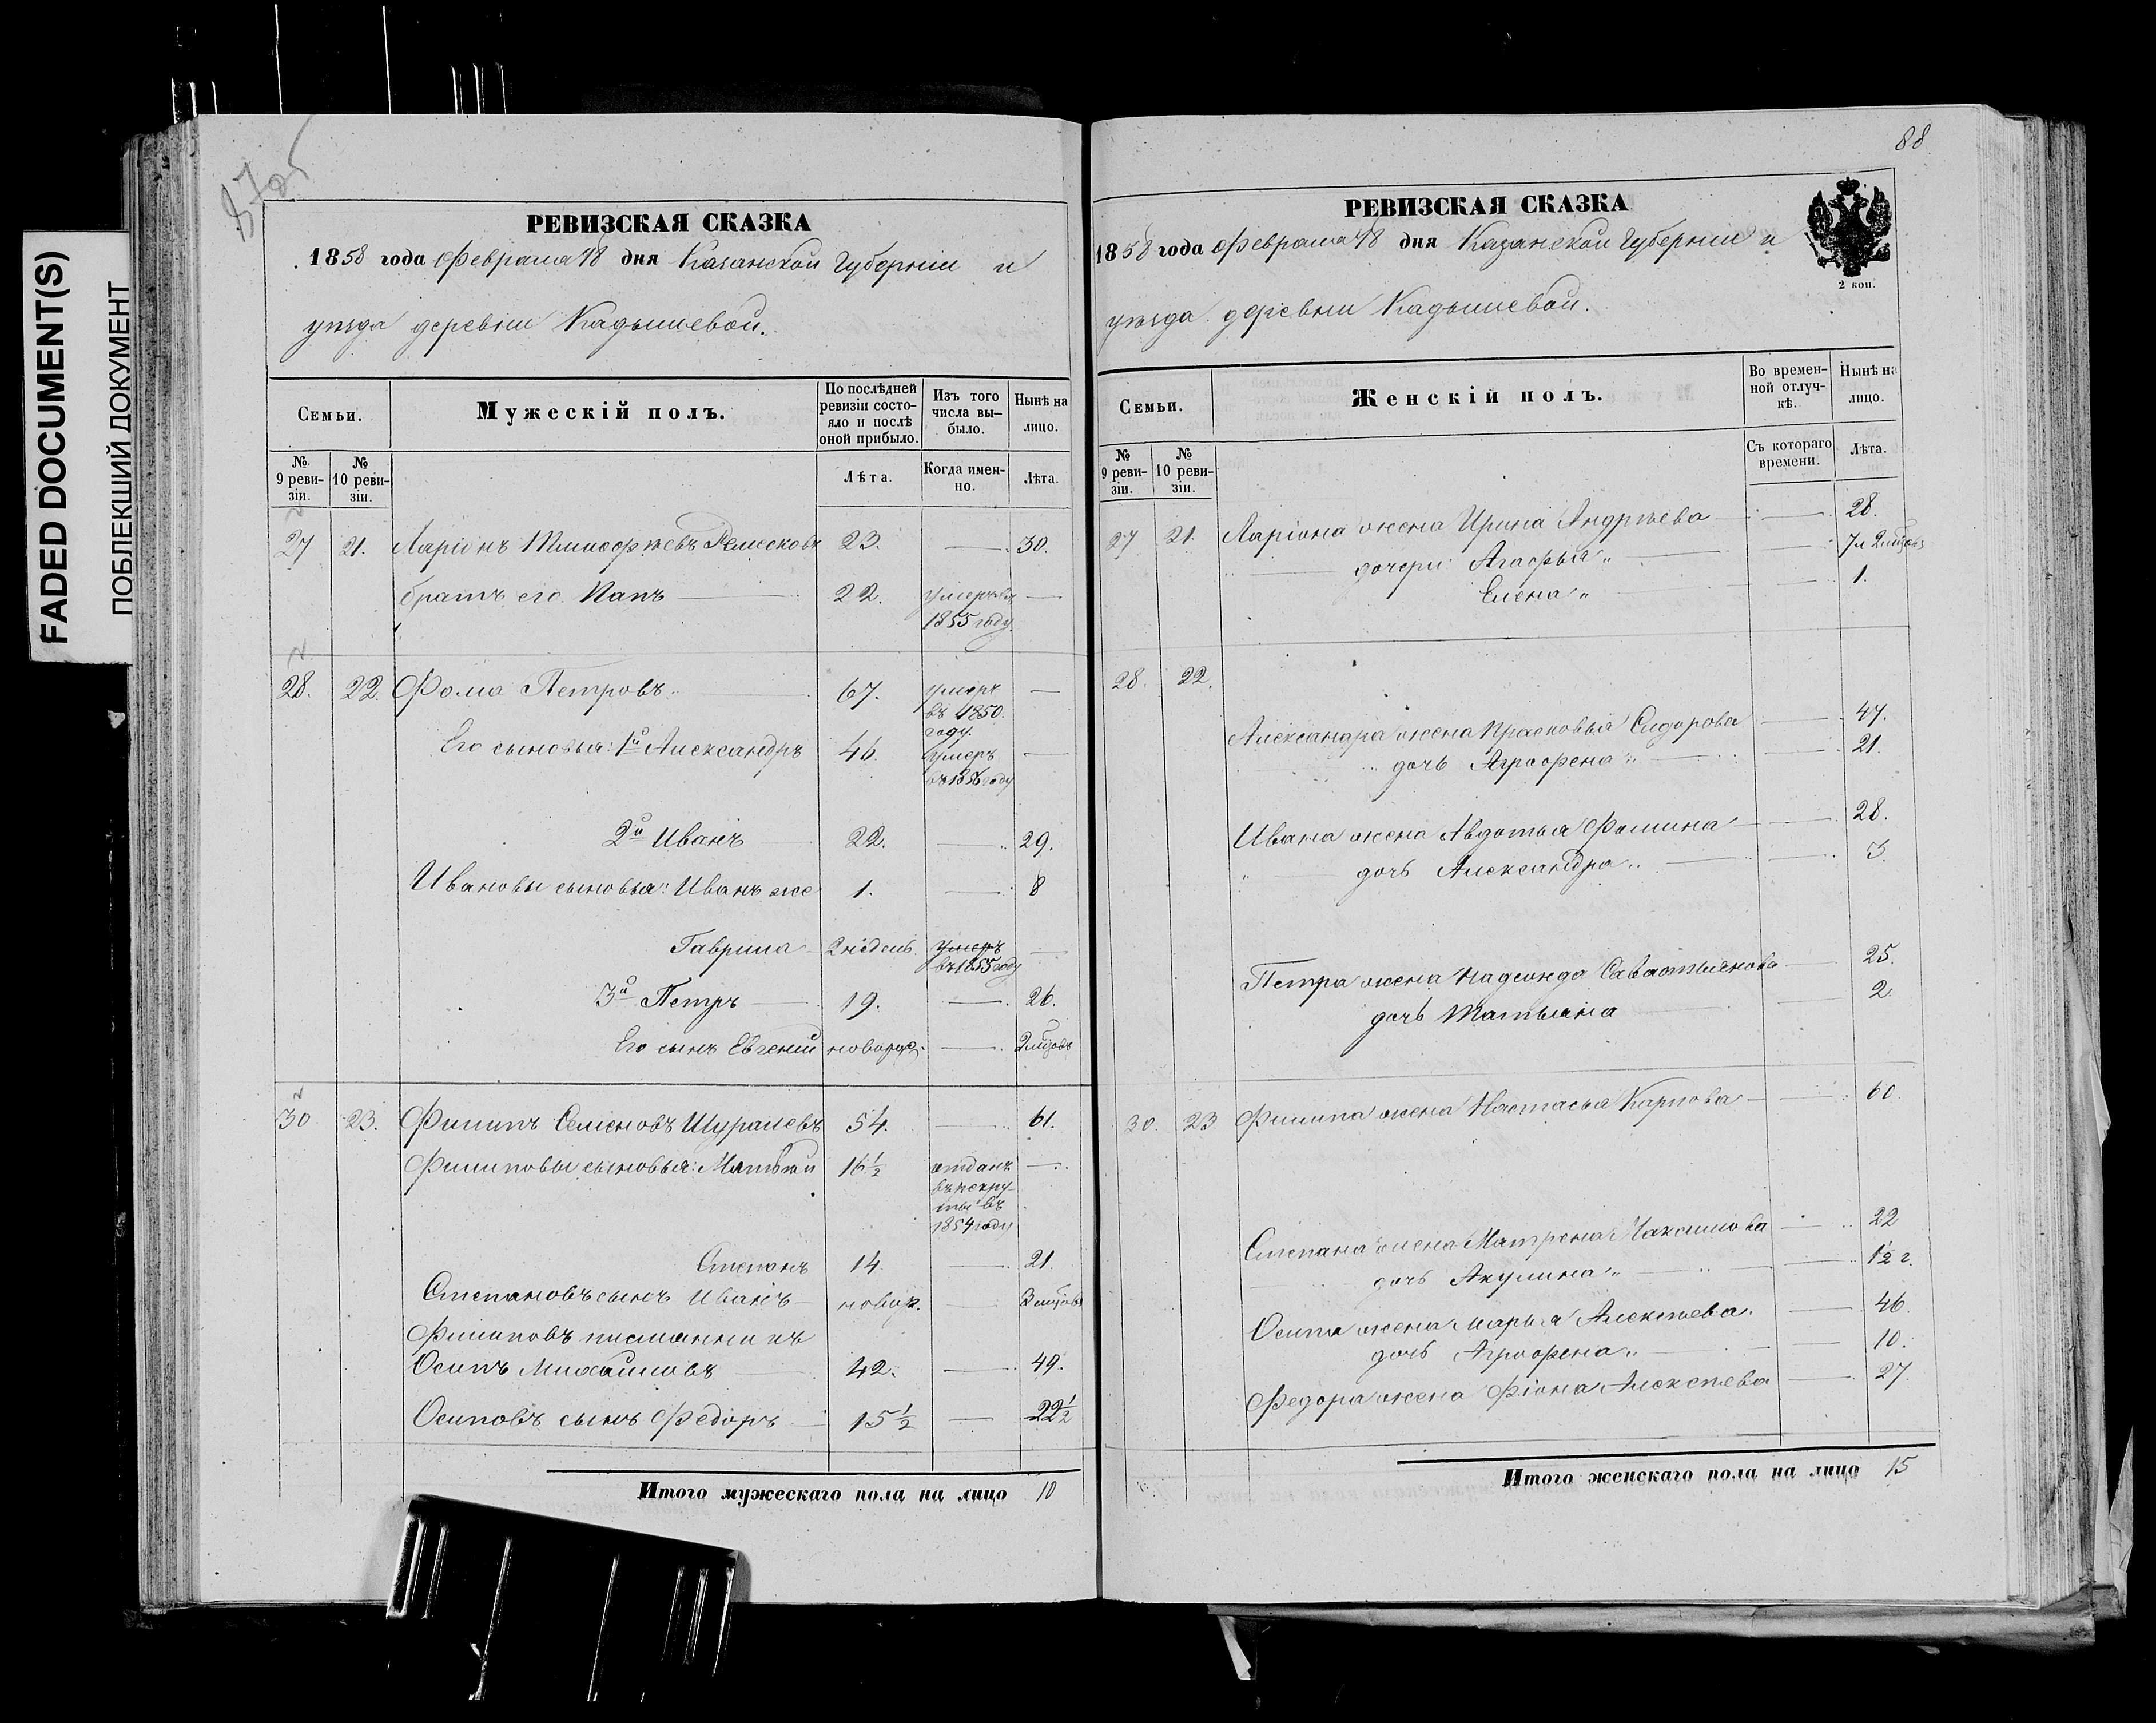 FADED DOCUMENT(S)
ПОБЛЕКШИЙ ДОКУМЕНТ
87об
РЕВИЗСКАЯ СКАЗКА
1858 года Февраля 18 дня Казанской Губерніи и
уѣзда деревни Кадышевой.
Семьи.
Мужескій полъ.
По послѣдней ревизіи состояло и послѣ оной прибыло.
Изъ того числа вы-было.
Нынѣ на лицо.
№ 9 реви-зіи.
№ 10 реви-зіи.
Лѣта.
Когда имен-но.
Лѣта.
27 21. Ларіонъ Тимофѣевъ 23. — 30.
братъ его 22. умеръ въ 1855 году —
28. 22. Фома Петровъ 67. умеръ въ 1850. году. —
Его сыновья: 1й Александръ 46. умеръ въ 1856 году —
2й Иванъ 22. — 29.
Ивановы сыновья: Иванъ же 1. — 8
Гаврила 2 недель умеръ въ 1855 году —
3й Петръ 19. — 26.
Его сынъ Евгений новорж. — 2 мѣсовъ
30 23. Филипъ Семеновъ Шуралевъ 54. — 61.
Филиповы сыновья: Матвей 16½ отданъ въ рекру-ты въ 1854 году —
Степанъ 14 — 21.
Степановъ сынъ Иванъ новор. — 3 мѣсовъ
Филиповъ племянникъ
Осипъ Михайловъ 42. — 49.
Осиповъ сынъ Федоръ 15½ — 22½
Итого мужескаго пола на лицо 10
88
РЕВИЗСКАЯ СКАЗКА
2 коп.
1858 года Февраля 18 дня Казанской Губерніи и
уѣзда деревни Кадышевой.
Семьи.
Женскій полъ.
Во времен-ной отлуч-кѣ.
Нынѣ на лицо.
№ 9 реви-зіи.
№ 10 реви-зіи.
Съ котораго времени.
Лѣта.
27 21. Ларіона жена Ирина Андрѣева — 28.
дочери: Агафья " — 7 и 2 мѣсовъ
Елена " — 1.
28. 22.
Александра жена Прасковья Сидорова — 47.
дочь Агрофена " — 21.
Ивана жена Авдотья Фомина — 28.
" дочь Александра " — 3
Петра жена Надежда Савастьянова — 25.
дочь Татьяна — 2.
30. 23 Филипа жена Настасья Карпова — 60.
Степана жена Матрена Максимова — 22
дочь Акулина " — 1½ г.
Осипа жена Марья Алексѣева. — 46.
дочь Агрофена " — 10.
Федора жена Фіона Алексѣева — 27.
Итого женскаго пола на лицо 15